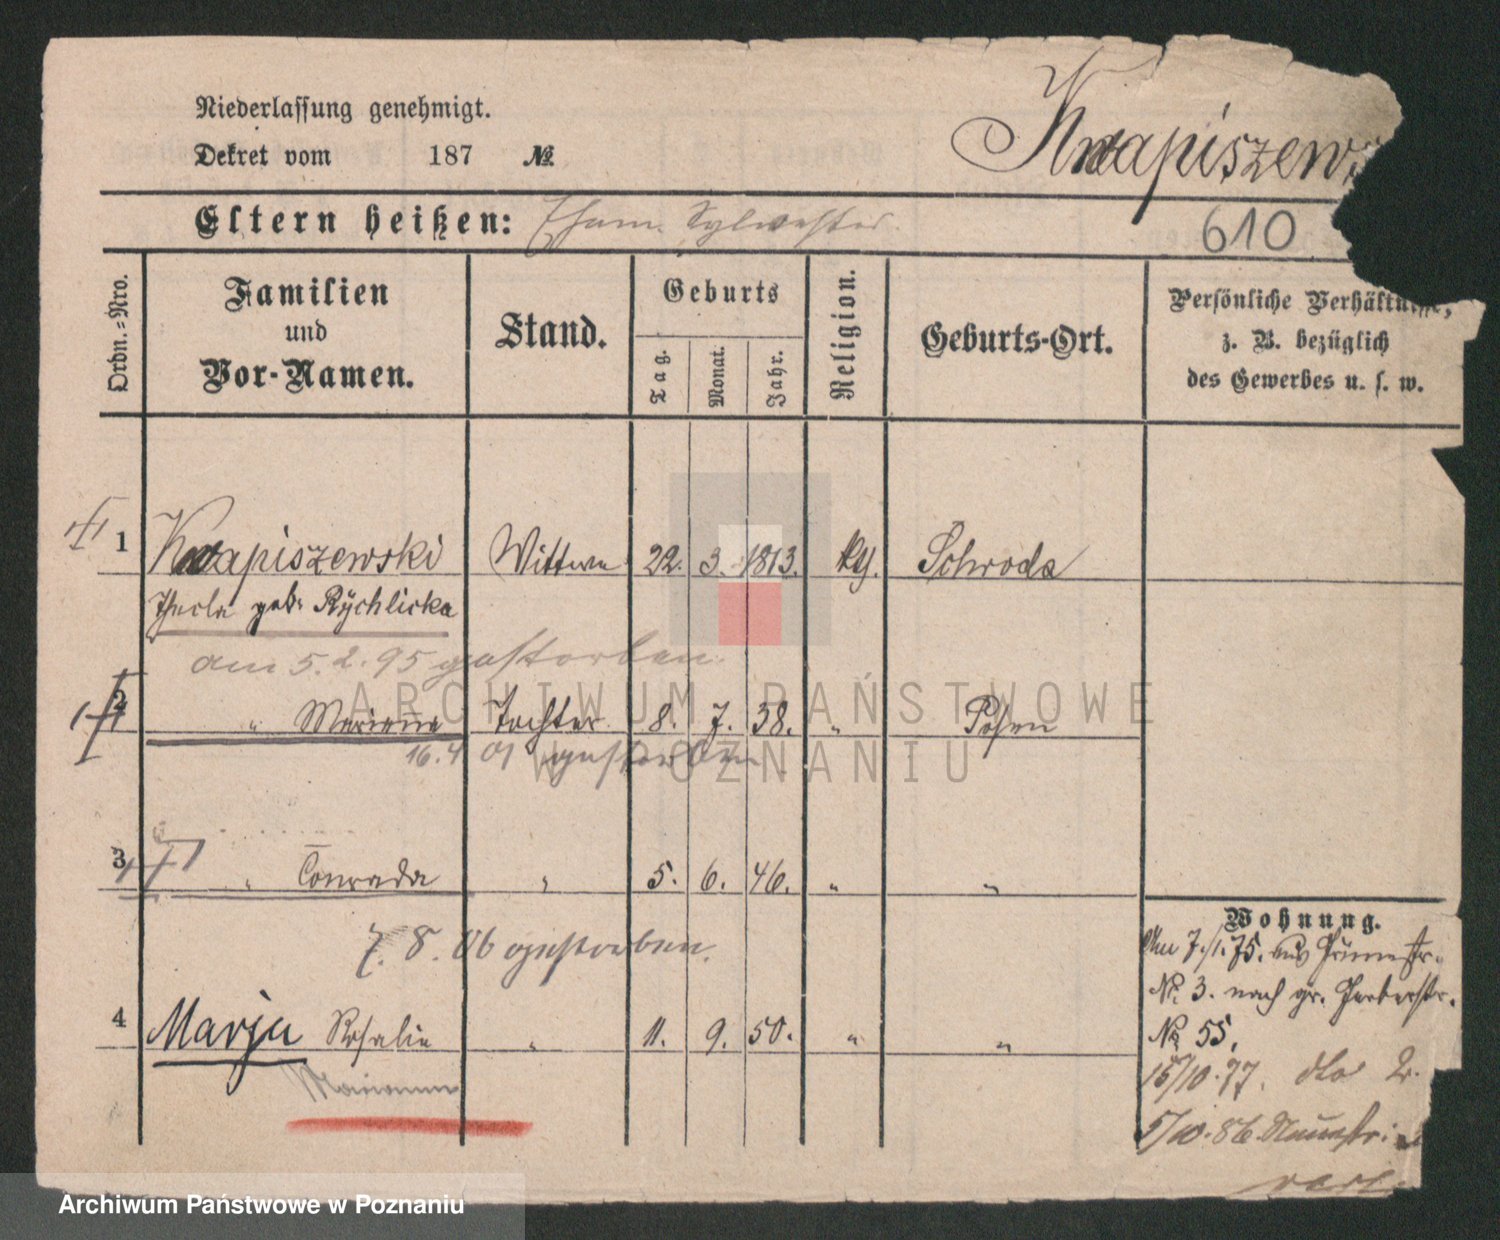 Niederlassung genehmigt.
Dekret vom 187 №
Kwapiszews
Eltern heißen: Eham. Sylwester.
610
Ordn.=Nro.
Familien
und
Vor-Namen.
Stand.
Geburts
Tag.
Monat.
Jahr.
Religion.
Geburts-Ort.
Persönliche Verhältnisse,
z. B. bezüglich
des Gewerbes u. s. w.
1 Kwapiszewski Wittwe 22. 3. 1813. kth. Schroda
Thecla geb. Rÿchlicka
am 5.2.95 gestorben.
2 " Marianna Tochter 8. 7. 38. " Posen
16.4 01 gestorben
3 " Conrada " 5. 6. 46. " "
7. 8. 06 gestorben.
4 Marja Rosalie " 11. 9. 50. " "
Marianna
Wohnung.
Am 7./1.75. aus
№ 3. nach gr. Gerberstr.
№ 55.
15/10.77. dto 2.
5/10.86.
vert
ARCHIWUM PAŃSTWOWE
W POZNANIU
Archiwum Państwowe w Poznaniu